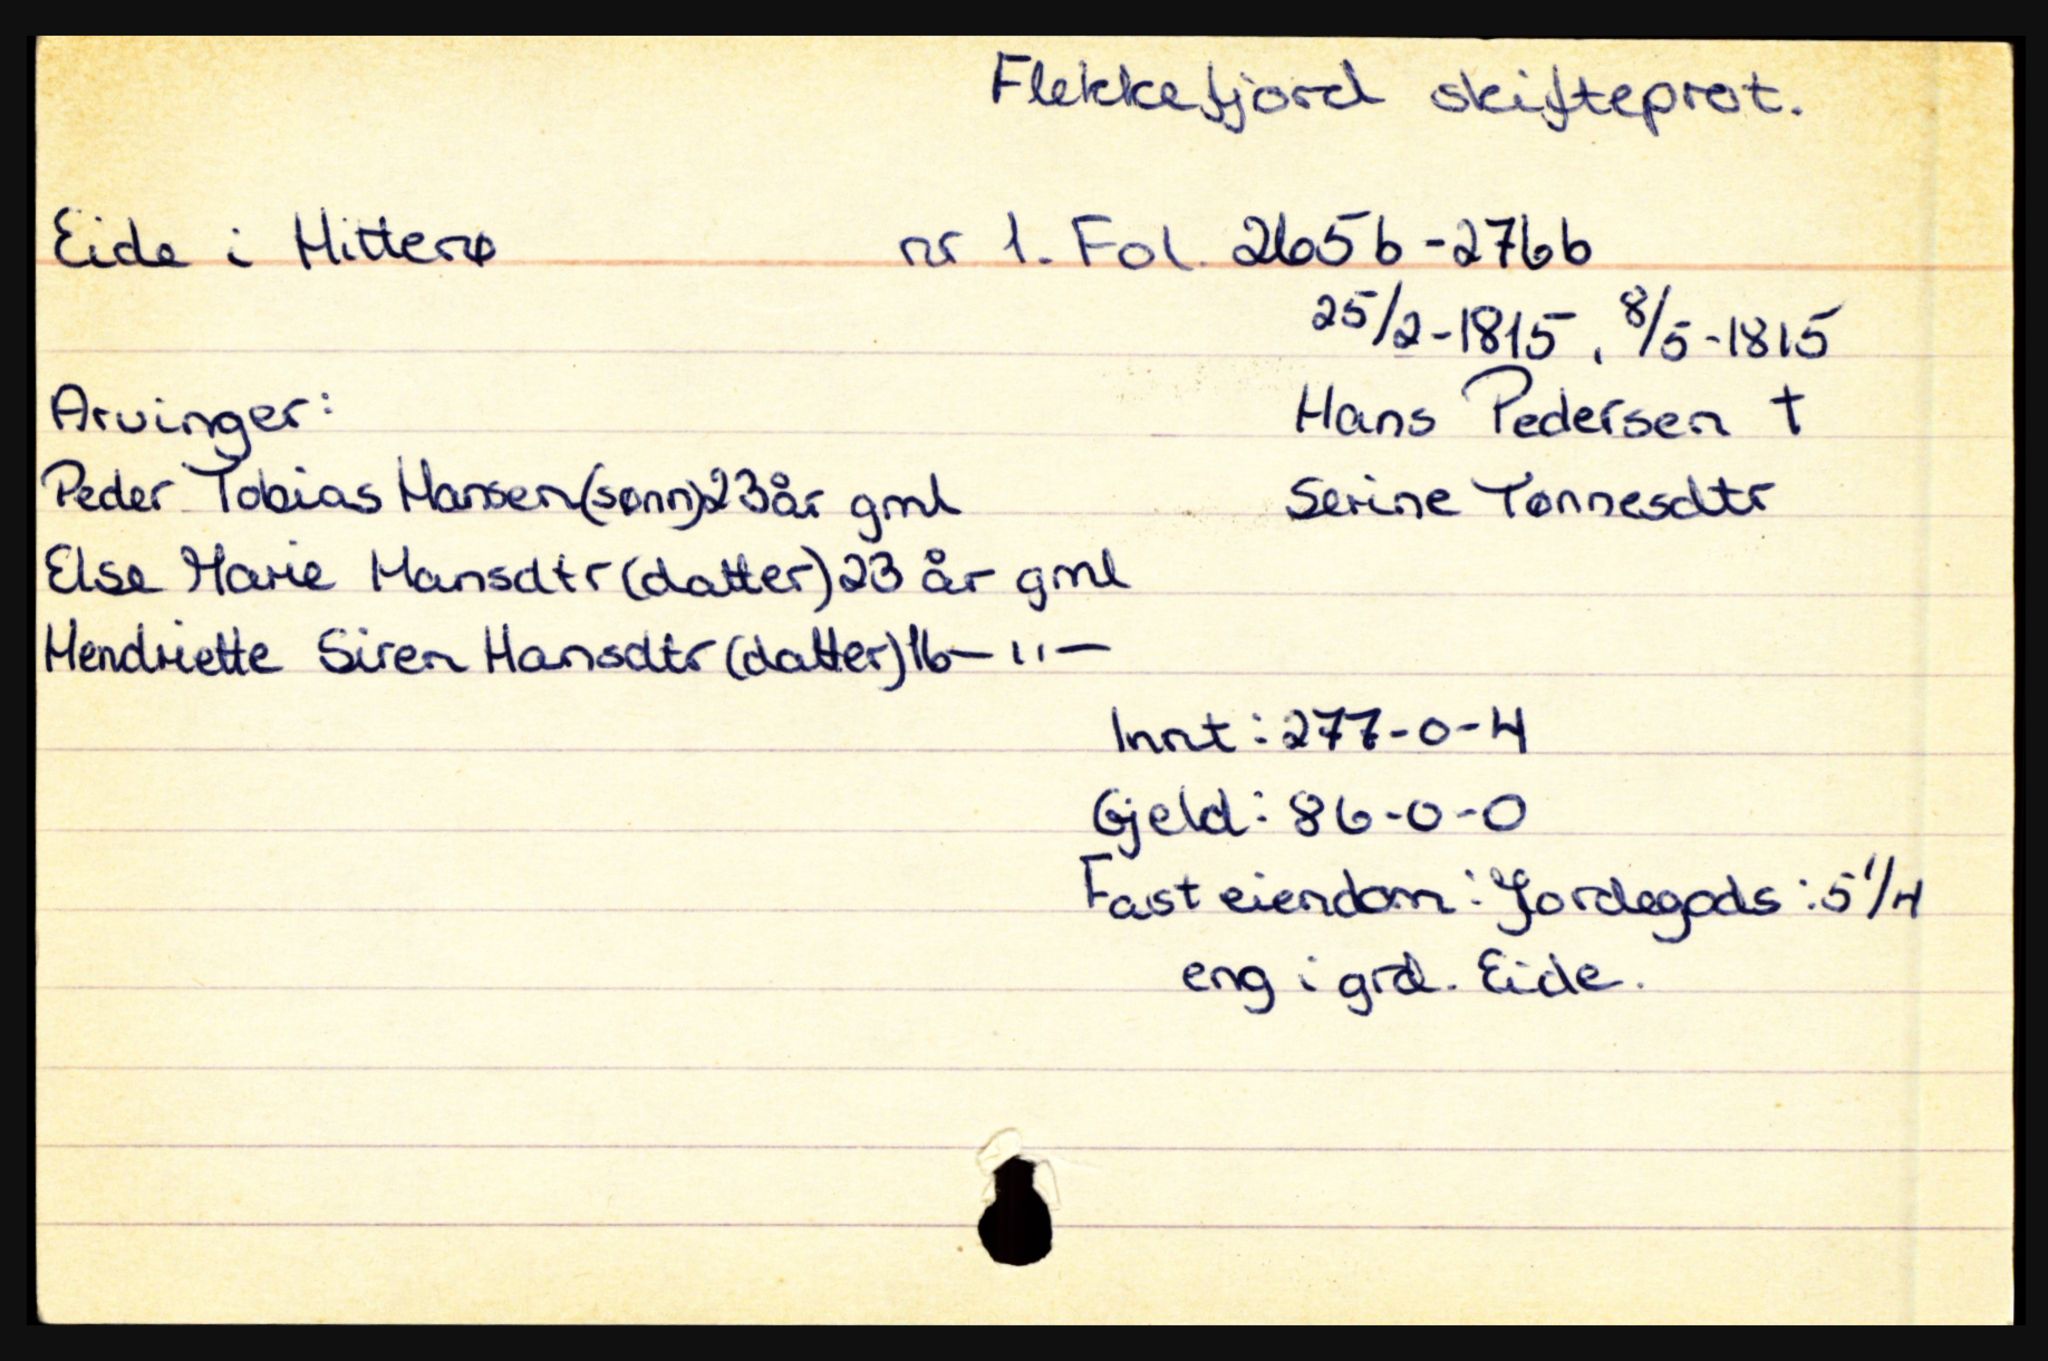 Flekkefjord skifteprot.
Eide i Hitterø nr 1. Fol. 265b-276b
25/2-1815, 8/5-1815
Arvinger: Hans Pedersen †
Peder Tobias Hansen (sønn) 23 år gml Serine Tønnesdtr
Else Marie Hansdtr (datter) 23 år gml
Hendriette Siren Hansdtr (datter) 16 — " —
Innt: 277-0-4
Gjeld: 86-0-0
Fast eiendom: Jordegods: 5 1/4
eng i grd. Eide.